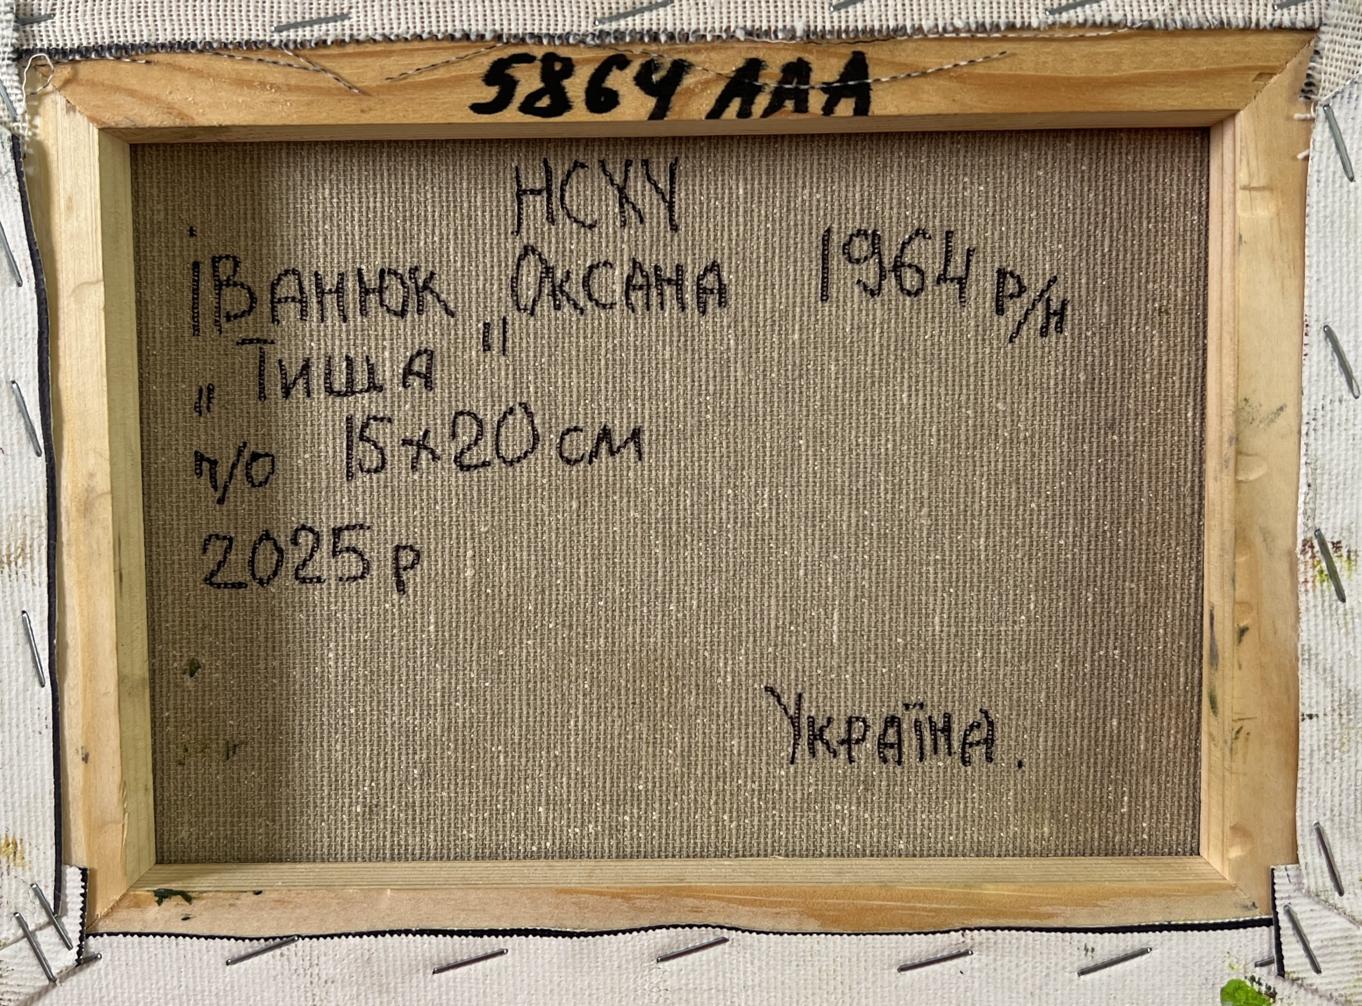 5864 AAA
НСХУ
Іванюк Оксана 1964 р/н
„Тиша"
п/о 15х20 см
2025 р
Україна.